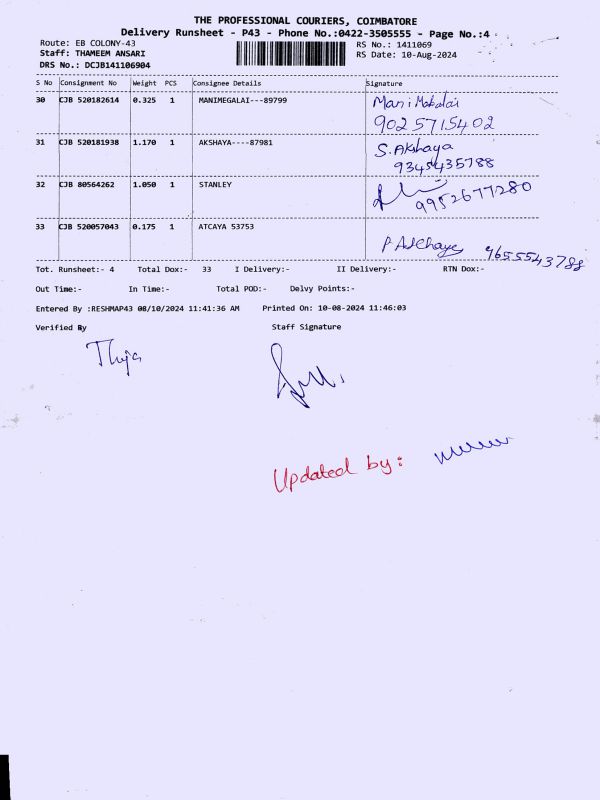 THE PROFESSIONAL COURIERS, COIMBATORE
Delivery Runsheet - P43 - Phone No.:0422-3505555 - Page No.:4
Route: EB COLONY-43 RS No.: 1411069
Staff: THAMEEM ANSARI RS Date: 10-Aug-2024
DRS No.: DCJB141106904
S No Consignment No Weight PCS Consignee Details Signature
30 CJB 520182614 0.325 1 MANIMEGALAI---89799 Mani
9025715402
31 CJB 520181938 1.170 1 AKSHAYA----87981 S. Akshaya
9345435788
32 CJB 80564262 1.050 1 STANLEY 9952677280
33 CJB 520057043 0.175 1 ATCAYA 53753
9655543788
Tot. Runsheet:- 4 Total Dox:- 33 I Delivery:- II Delivery:- RTN Dox:-
Out Time:- In Time:- Total POD:- Delvy Points:-
Entered By :RESHMAP43 08/10/2024 11:41:36 AM Printed On: 10-08-2024 11:46:03
Verified By Staff Signature
Updated by: